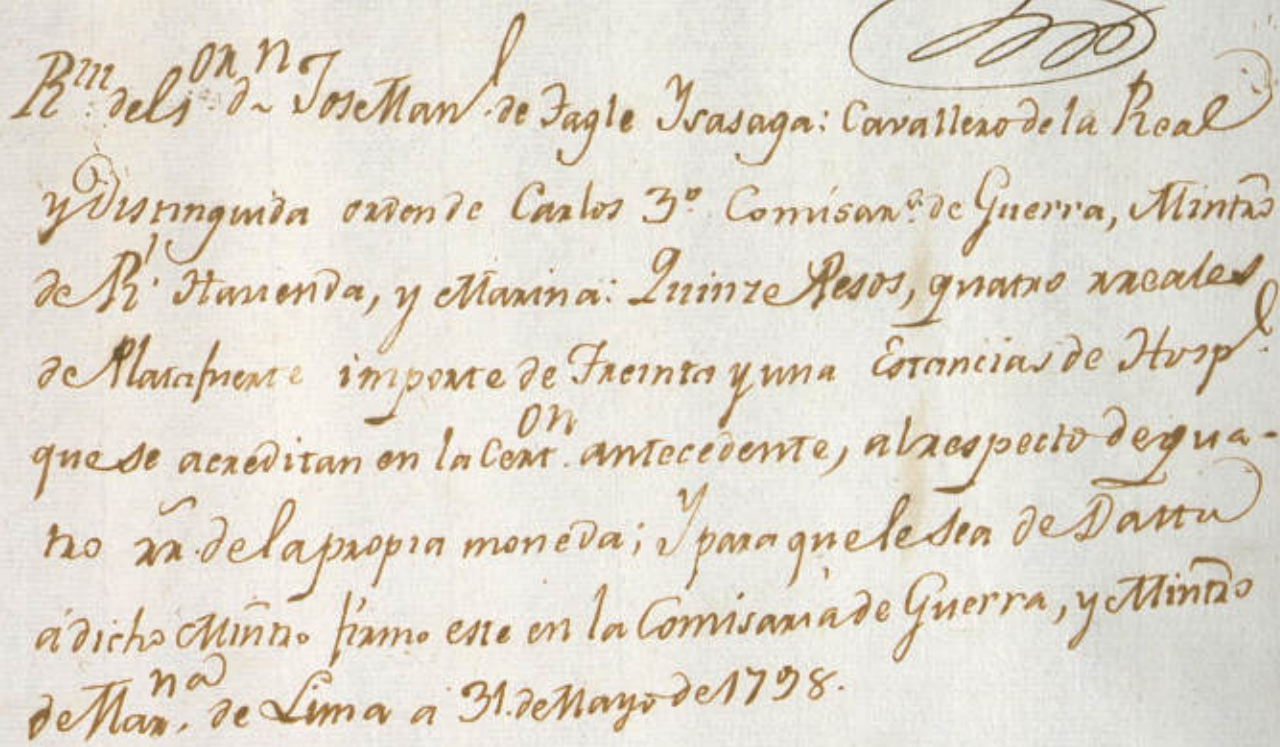 Rm. del Sor. dn. Jose Manl. de Tagle Ysasaga: Cavallero de la Real
y Distinguida orden de Carlos 3º. Comisaro. de Guerra, Mintro
de Rl. Hacienda, y Marina: Quinze Pesos, quatro rreales
de Plata fuerte importe de Treinta y una Estancias de Hospl.
que se acreditan en la Ceron. antecedente, al respecto de qua-
tro rr. de la propia moneda; Y para que le sea de Datta
á dicho Mintro. firmo este en la Comisaria de Guerra, y Mintro
de Marna. de Lima a 31. de Mayo de 1798.